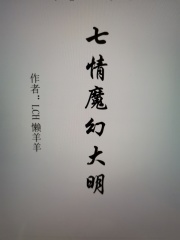 七情魔幻大明
作者：LCH 懒羊羊